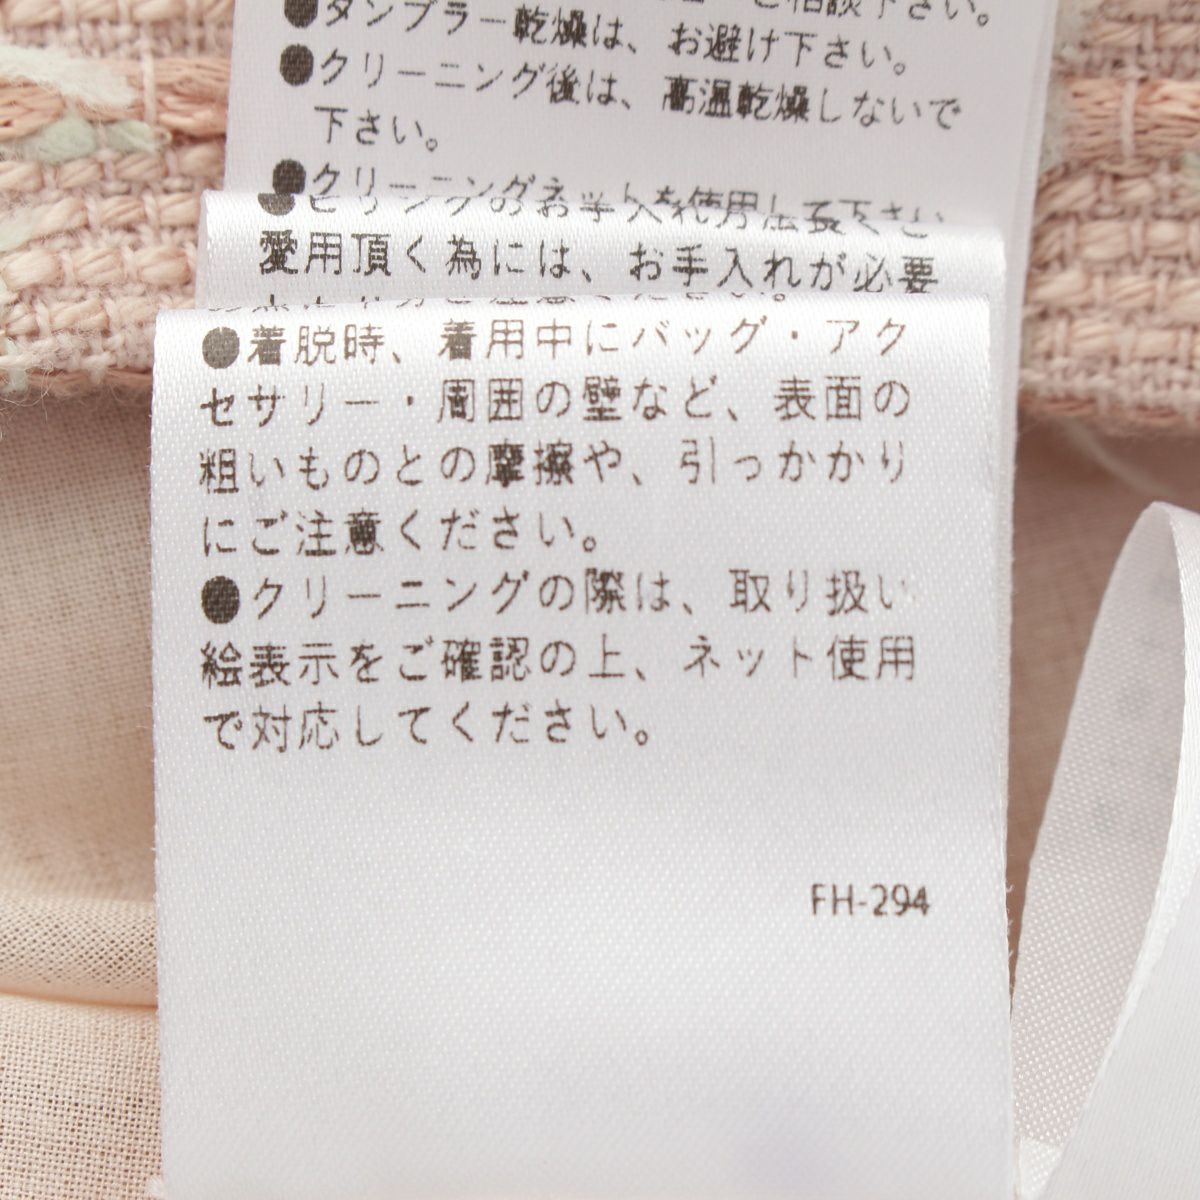 ご相談下さい。
●タンブラー乾燥は、お避け下さい。
●クリーニング後は、高温乾燥しないで
下さい。
●クリーニングネットを使用
愛用頂く為には、お手入れが必要
●着脱時、着用中にバッグ・アク
セサリー・周囲の壁など、表面の
粗いものとの摩擦や、引っかかり
にご注意ください。
●クリーニングの際は、取り扱い
絵表示をご確認の上、ネット使用
で対応してください。
FH-294